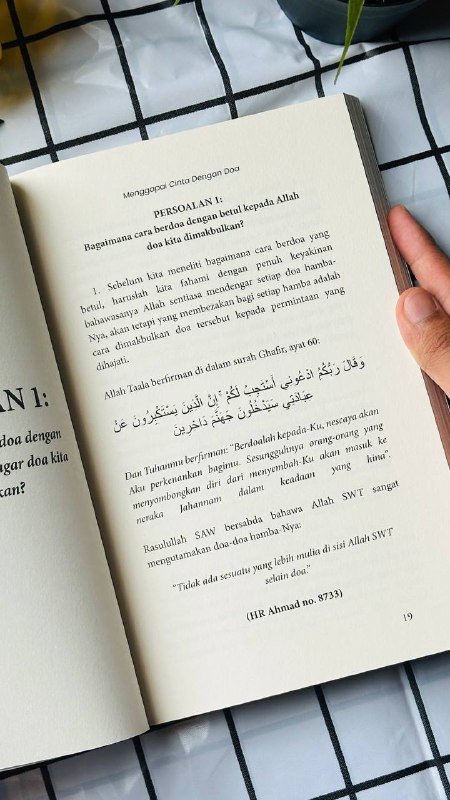 AN 1:
doa dengan
gar doa kita
kan?
Menggapai Cinta Dengan Doa
PERSOALAN 1:
Bagaimana cara berdoa dengan betul kepada Allah
doa kita dimakbulkan?
1. Sebelum kita meneliti bagaimana cara berdoa yang
betul, haruslah kita fahami dengan penuh keyakinan
bahawasanya Allah sentiasa mendengar setiap doa hamba-
Nya, akan tetapi yang membezakan bagi setiap hamba adalah
cara dimakbulkan doa tersebut kepada permintaan yang
dihajati.
Allah Taala berfirman di dalam surah Ghafir, ayat 60:
وَقَالَ رَبُّكُمُ ادْعُونِي أَسْتَجِبْ لَكُمْ ۚ إِنَّ الَّذِينَ يَسْتَكْبِرُونَ عَنْ
عِبَادَتِي سَيَدْخُلُونَ جَهَنَّمَ دَاخِرِينَ
Dan Tuhanmu berfirman: "Berdoalah kepada-Ku, nescaya akan
Aku perkenankan bagimu. Sesungguhnya orang-orang yang
menyombongkan diri dari menyembah-Ku akan masuk ke
neraka Jahannam dalam keadaan yang hina".
Rasulullah SAW bersabda bahawa Allah SWT sangat
mengutamakan doa-doa hamba-Nya:
"Tidak ada sesuatu yang lebih mulia di sisi Allah SWT
selain doa."
(HR Ahmad no. 8733)
19